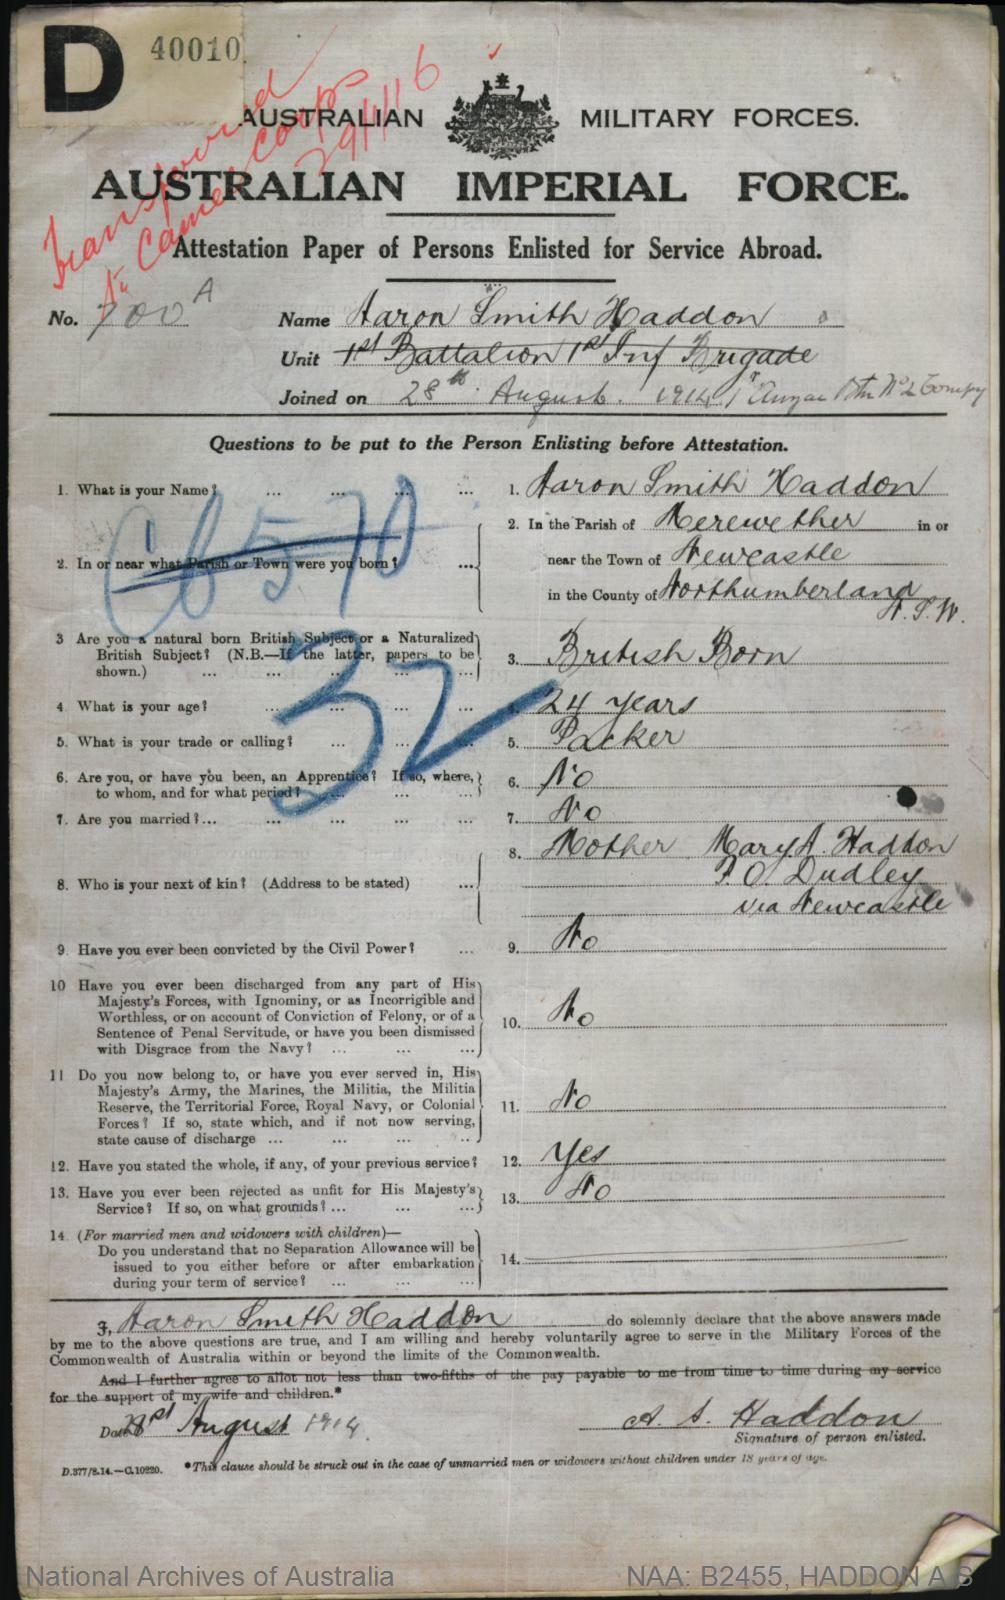 D 40010
Transferred
to Camel Corps
29/1/16
AUSTRALIAN MILITARY FORCES.
AUSTRALIAN IMPERIAL FORCE.
Attestation Paper of Persons Enlisted for Service Abroad.
No. 700 A Name Aaron Smith Haddon
Unit 1st Battalion 1st Inf Brigade
Joined on 28th August. 1914 1st Anzac Btn No 2 Compy
Questions to be put to the Person Enlisting before Attestation.
1. What is your Name? ... ... ... ... 1. Aaron Smith Haddon
2. In or near what Parish or Town were you born? ... 2. In the Parish of Merewether in or
near the Town of Newcastle
in the County of Northumberland
N.S.W.
3 Are you a natural born British Subject or a Naturalized
British Subject? (N.B.—If the latter, papers to be
shown.) ... ... ... ... 3. British Born
4. What is your age? ... ... ... ... 24 years
5. What is your trade or calling? ... ... ... 5. Packer
6. Are you, or have you been, an Apprentice? If so, where,
to whom, and for what period? ... ... ... 6. No
7. Are you married?... ... ... ... ... 7. No
8. Who is your next of kin? (Address to be stated) ... 8. Mother Mary A. Haddon
P.O. Dudley
via Newcastle
32
9. Have you ever been convicted by the Civil Power? ... 9. No
10 Have you ever been discharged from any part of His
Majesty's Forces, with Ignominy, or as Incorrigible and
Worthless, or on account of Conviction of Felony, or of a
Sentence of Penal Servitude, or have you been dismissed
with Disgrace from the Navy? ... ... ... 10. No
11 Do you now belong to, or have you ever served in, His
Majesty's Army, the Marines, the Militia, the Militia
Reserve, the Territorial Force, Royal Navy, or Colonial
Forces? If so, state which, and if not now serving,
state cause of discharge ... ... ... .. 11. No
12. Have you stated the whole, if any, of your previous service? 12. Yes
13. Have you ever been rejected as unfit for His Majesty's
Service? If so, on what grounds? ... ... ... 13. No
14. (For married men and widowers with children)—
Do you understand that no Separation Allowance will be
issued to you either before or after embarkation
during your term of service? ... ... ... 14.
I, Aaron Smith Haddon do solemnly declare that the above answers made
by me to the above questions are true, and I am willing and hereby voluntarily agree to serve in the Military Forces of the
Commonwealth of Australia within or beyond the limits of the Commonwealth.
And I further agree to allot not less than two-fifths of the pay payable to me from time to time during my service
for the support of my wife and children.*
Date August 1914. A. S. Haddon
Signature of person enlisted.
D.377/8.14.—C.10220. *This clause should be struck out in the case of unmarried men or widowers without children under 18 years of age.
National Archives of Australia NAA: B2455, HADDON A S